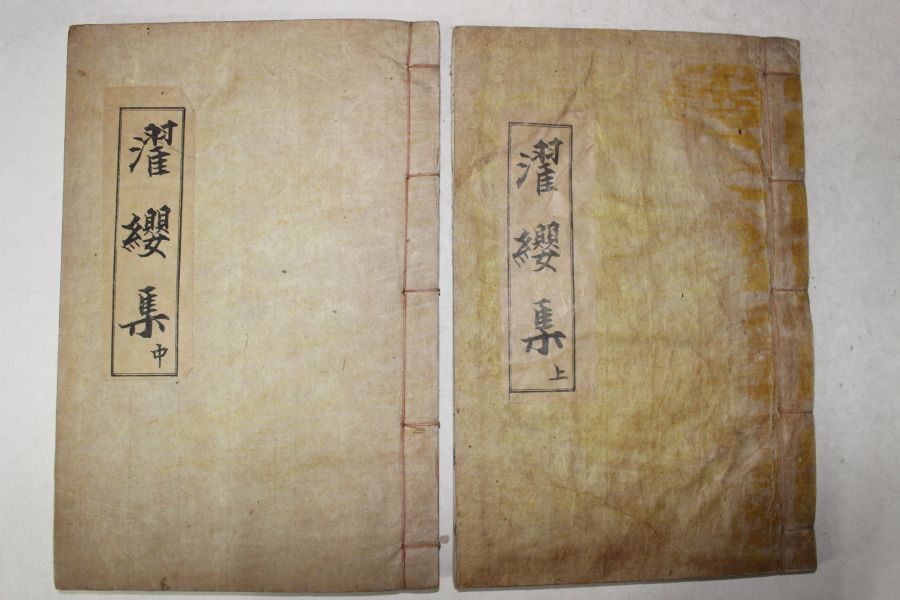 濯纓集上
濯纓集中